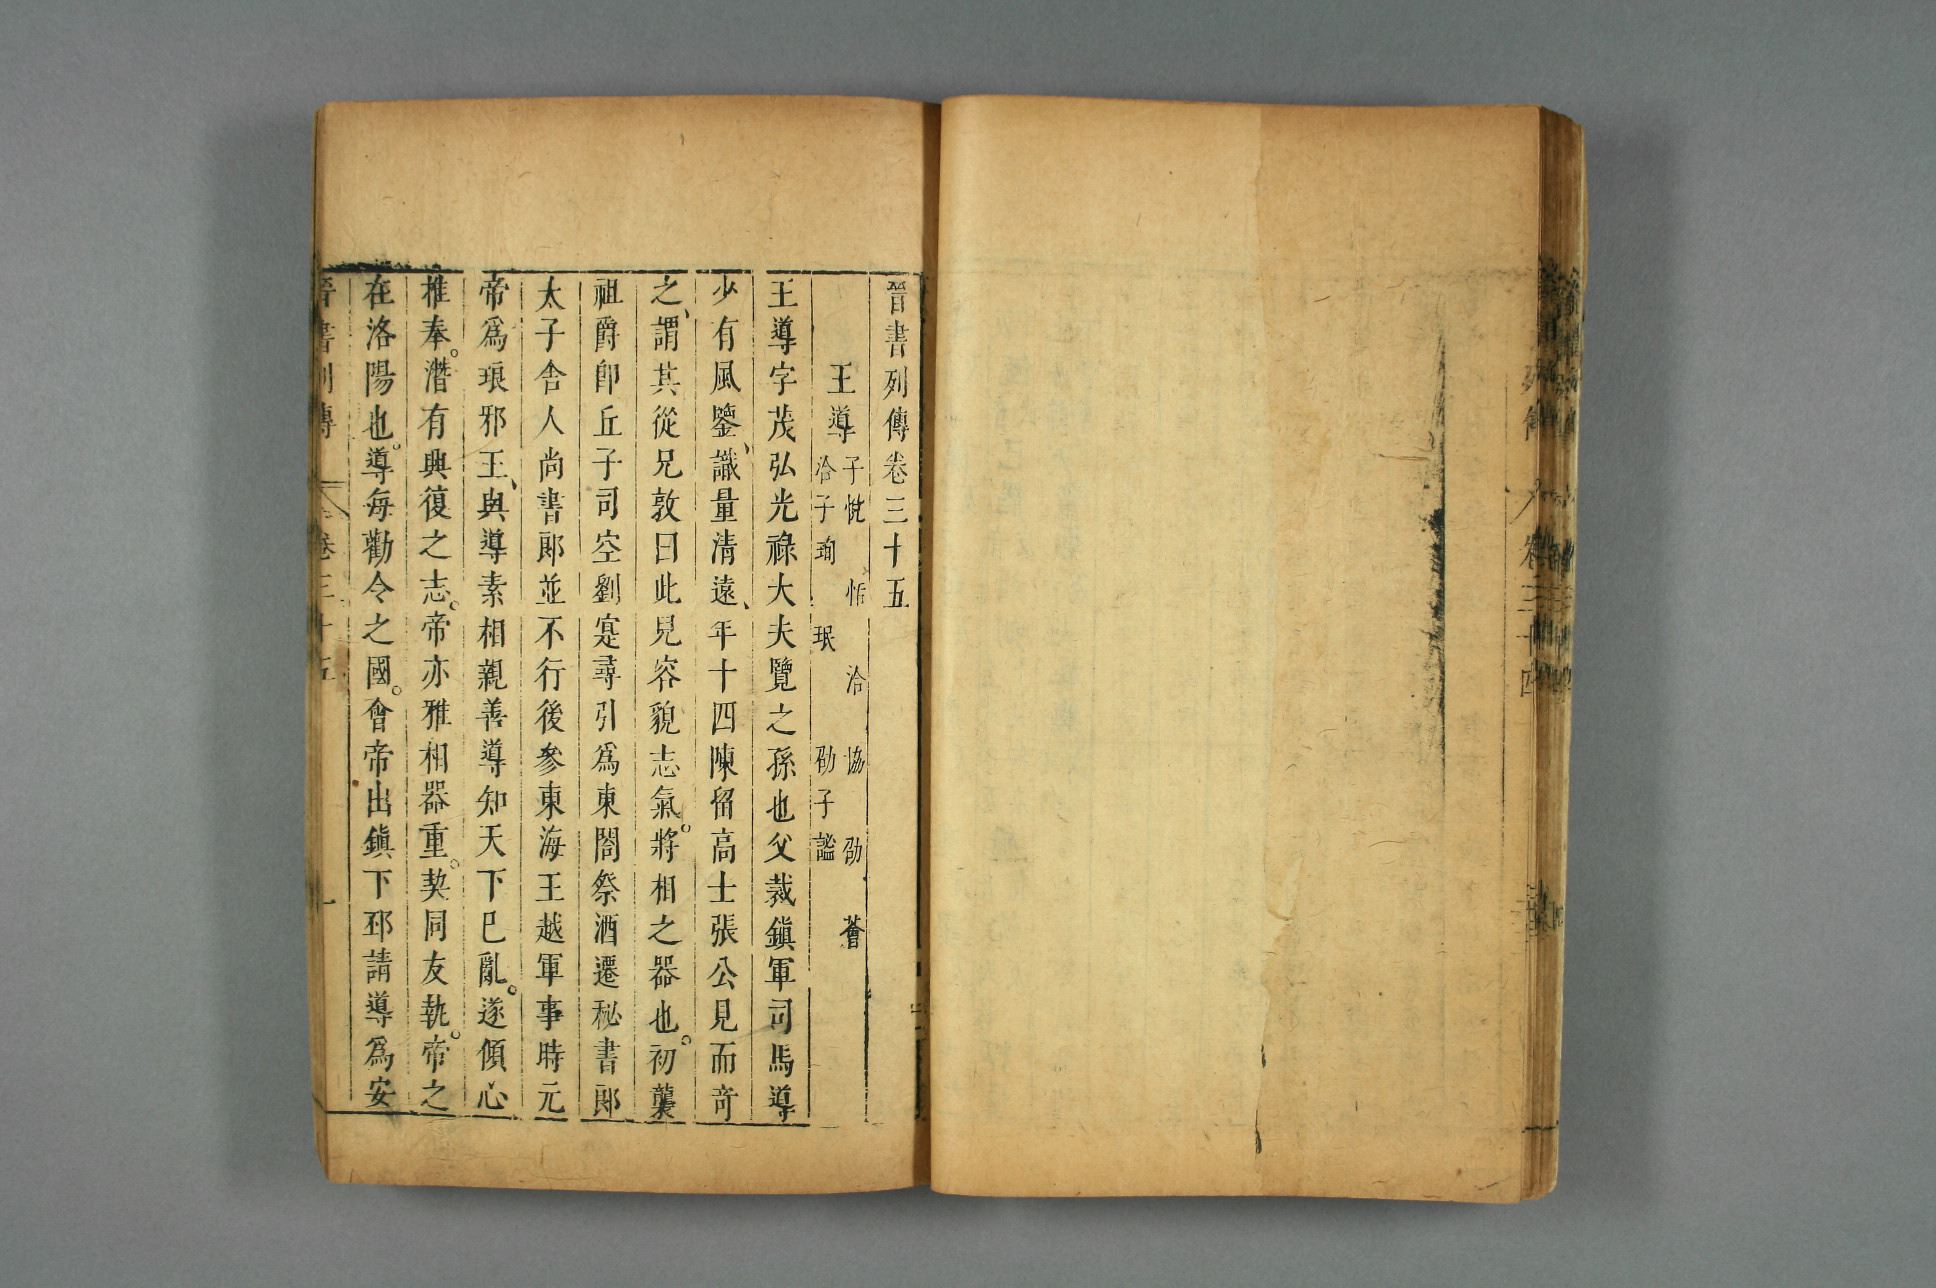 晉書列傳卷三十五
王導子悅 恬 洽 協 劭 薈
洽子珣 珉 劭子謐
王導字茂弘光祿大夫覽之孫也父裁鎭軍司馬導
少有風鑒、識量清遠、年十四陳留高士張公見而奇
之、謂其從兄敦曰此兒容貌志氣。將相之器也。初襲
祖爵卽丘子司空劉寔尋引爲東閤祭酒遷秘書郞
太子舍人尚書郞並不行後參東海王越軍事時元
帝爲琅邪王、與導素相親善導知天下已亂。遂傾心
推奉。潛有興復之志。帝亦雅相器重。契同友執。帝之
在洛陽也。導每勸令之國。會帝出鎭下邳請導爲安
晉書列傳 卷三十五 一
列傳 卷三十四